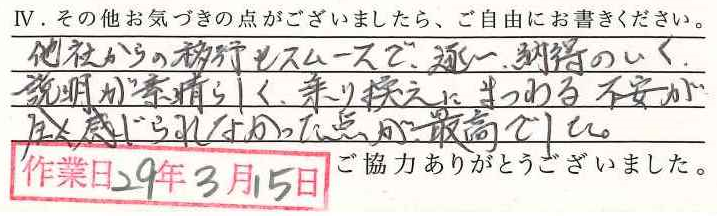 Ⅳ．その他お気づきの点がございましたら、ご自由にお書きください。
他社からの移行もスムースで、逐一、納得のいく
説明が素晴らしく、乗り換えにまつわる不安が
全く感じられなかった点が最高でした。
ご協力ありがとうございました。
作業日29年3月15日